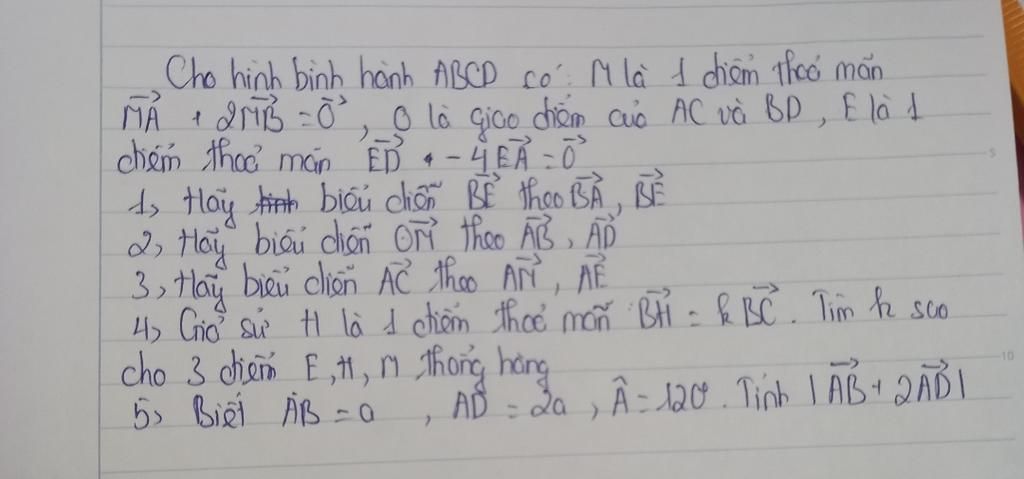 Cho hình bình hành ABCD có: M là 1 điểm thoả mãn
$\overrightarrow{MA} + 2\overrightarrow{MB} = \vec{0}$, O là giao điểm của AC và BD, E là 1
điểm thoả mãn $\overrightarrow{ED} - 4\overrightarrow{EA} = \vec{0}$
1, Hãy biểu diễn $\overrightarrow{BE}$ theo $\overrightarrow{BA}$, $\overrightarrow{BE}$
2, Hãy biểu diễn $\overrightarrow{OM}$ theo $\overrightarrow{AB}$, $\overrightarrow{AD}$
3, Hãy biểu diễn $\overrightarrow{AC}$ theo $\overrightarrow{AM}$, $\overrightarrow{AE}$
4, Giả sử H là 1 điểm thoả mãn $\overrightarrow{BH} = k\overrightarrow{BC}$. Tìm k sao
cho 3 điểm E, H, M thẳng hàng
5, Biết AB = a, AD = 2a, Â = 120°. Tính $|\overrightarrow{AB} + 2\overrightarrow{AD}|$